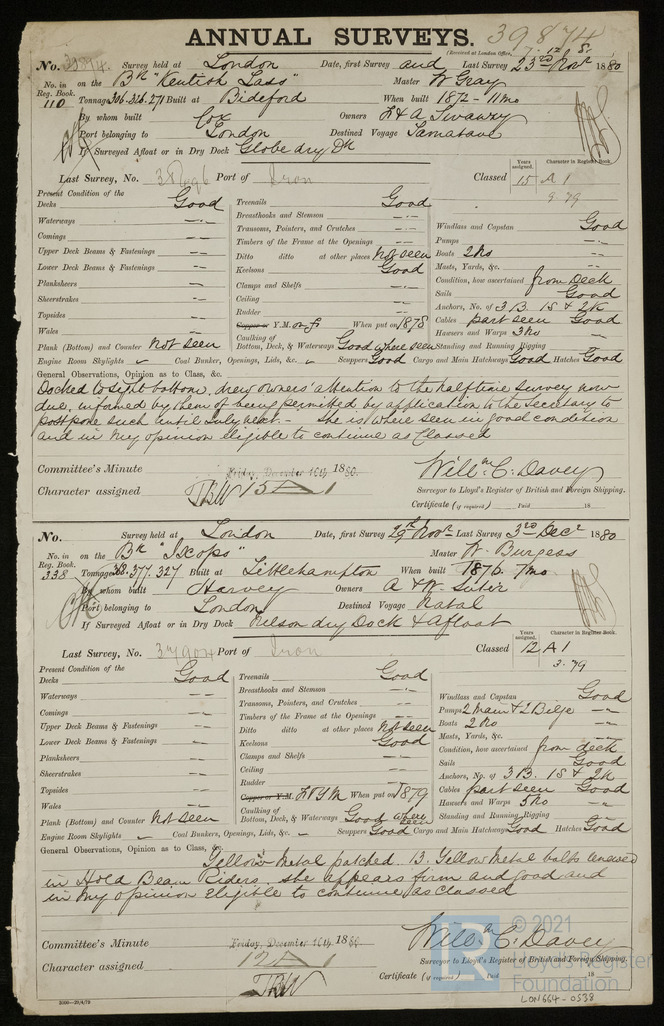 ANNUAL SURVEYS. 39874
(Received at London Office,
No. 39874. Survey held at London Date, first Survey and Last Survey 23rd Novr 1880
No. in Reg. Book. 110 on the Bk "Kentish Lass" Master W Gray
Tonnage 306.326.271 Built at Bideford When built 1872-11mo
By whom built Cox Owners
Port belonging to London Destined Voyage Tamatave
If Surveyed Afloat or in Dry Dock Globe dry Dk
Last Survey, No. 38696 Port of Iron Classed Years assigned. 15 Character in Register Book. A 1
9.79
Present Condition of the
Decks Good
Waterways
Comings
Upper Deck Beams & Fastenings
Lower Deck Beams & Fastenings
Planksheers
Sheerstrakes
Topsides
Wales
Plank (Bottom) and Counter Not seen
Engine Room Skylights Coal Bunkers, Openings, Lids, &c.
Treenails Good
Breasthooks and Stemson
Transoms, Pointers, and Crutches
Timbers of the Frame at the Openings
Ditto ditto at other places Not seen
Keelsons Good
Clamps and Shelfs
Ceiling
Rudder
Copper or Y.M. on ft When put on 1878
Caulking of Bottom, Deck, & Waterways Good where seen
Scuppers Good Cargo and Main Hatchways Good Hatches Good
Windlass and Capstan Good
Pumps
Boats 2 No
Masts, Yards, &c.
Condition, how ascertained from Deck
Sails Good
Anchors, No. of 3 B. 1 S & 2 K
Cables part seen Good
Hawsers and Warps 3 No
Standing and Running Rigging
General Observations, Opinion as to Class, &c.
Docked to sight bottom, drew owners' attention to the halftime survey now
due, informed by them of being permitted by application to the Secretary to
postpone such until July next.- She is where seen in good condition
and in my opinion eligible to continue as Classed
Committee's Minute Friday, December 10th 1880.
Character assigned 15 A 1
Willm C. Davey
Surveyor to Lloyd's Register of British and Foreign Shipping.
Certificate (if required) Paid 18
No. Survey held at London Date, first Survey 29th Novr Last Survey 3rd Decr 1880
No. in Reg. Book. 338 on the Bk "Ixops" Master W. Burgess
Tonnage 368.377.327 Built at Littlehampton When built 1870. 7mo
By whom built Harvey Owners A & W. Suter
Port belonging to London Destined Voyage Natal
If Surveyed Afloat or in Dry Dock Nelson dry Dock & Afloat
Last Survey, No. 37904 Port of Iron Classed Years assigned. 12 Character in Register Book. A 1
3.79
Present Condition of the
Decks Good
Waterways
Comings
Upper Deck Beams & Fastenings
Lower Deck Beams & Fastenings
Planksheers
Sheerstrakes
Topsides
Wales
Plank (Bottom) and Counter Not seen
Engine Room Skylights Coal Bunkers, Openings, Lids, &c.
Treenails Good
Breasthooks and Stemson
Transoms, Pointers, and Crutches
Timbers of the Frame at the Openings
Ditto ditto at other places Not seen
Keelsons Good
Clamps and Shelfs
Ceiling
Rudder
Copper or Y.M. F & Y M When put on 1879
Caulking of Bottom, Deck, & Waterways Good where seen
Scuppers Good Cargo and Main Hatchways Good Hatches Good
Windlass and Capstan Good
Pumps 2 Main & 2 Bilge
Boats 2 No
Masts, Yards, &c.
Condition, how ascertained from deck
Sails Good
Anchors, No. of 3 B. 1 S & 2 K
Cables part seen Good
Hawsers and Warps 5 No
Standing and Running Rigging
General Observations, Opinion as to Class, &c.
Yellow Metal patched. 13 Yellow Metal bolts renewed
in Hold Beam Riders. She appears firm and good and
in my opinion Eligible to continue as classed
Committee's Minute Friday, December 10th 1880
Character assigned 12 A 1
Willm C. Davey
Surveyor to Lloyd's Register of British and Foreign Shipping.
Certificate (if required) Paid 18
© 2021
Lloyd's Register
Foundation
LON664-0538